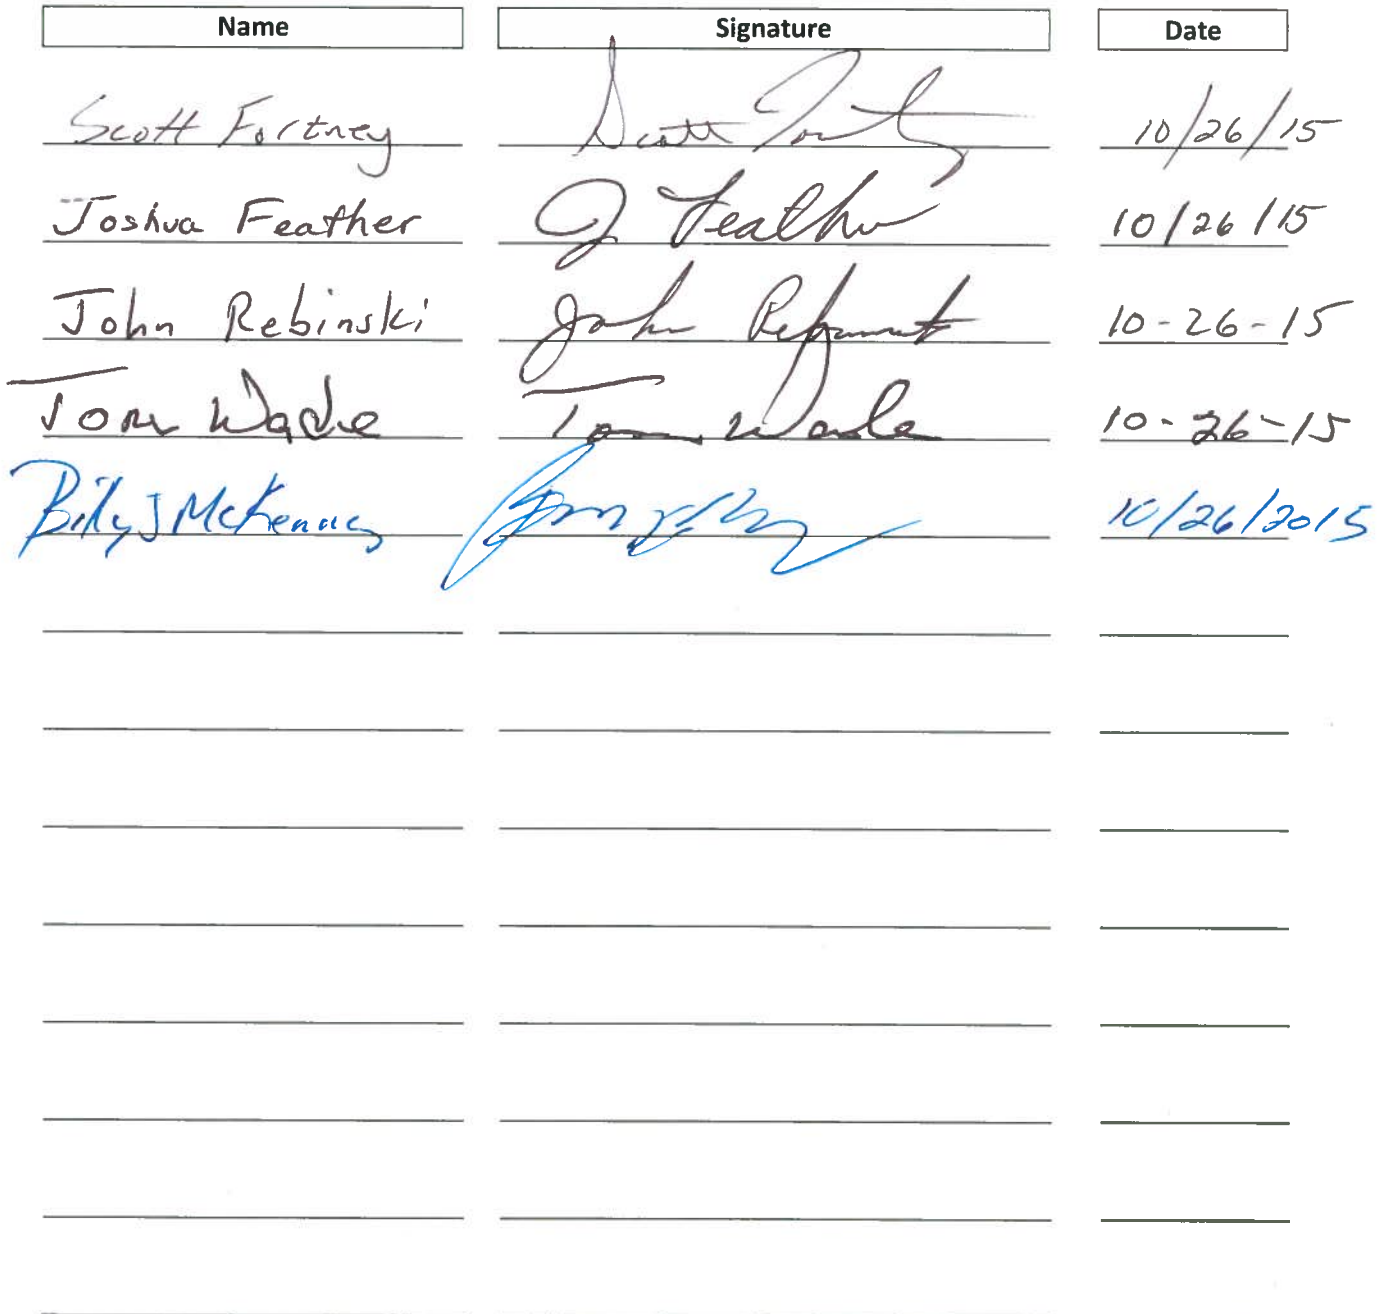 Name Signature Date
Scott Fortney Scott Fortney 10/26/15
Joshua Feather J Feather 10/26/15
John Rebinski John Rebinski 10-26-15
Tom Wade Tom Wade 10-26-15
Billy J McKenney 10/26/2015